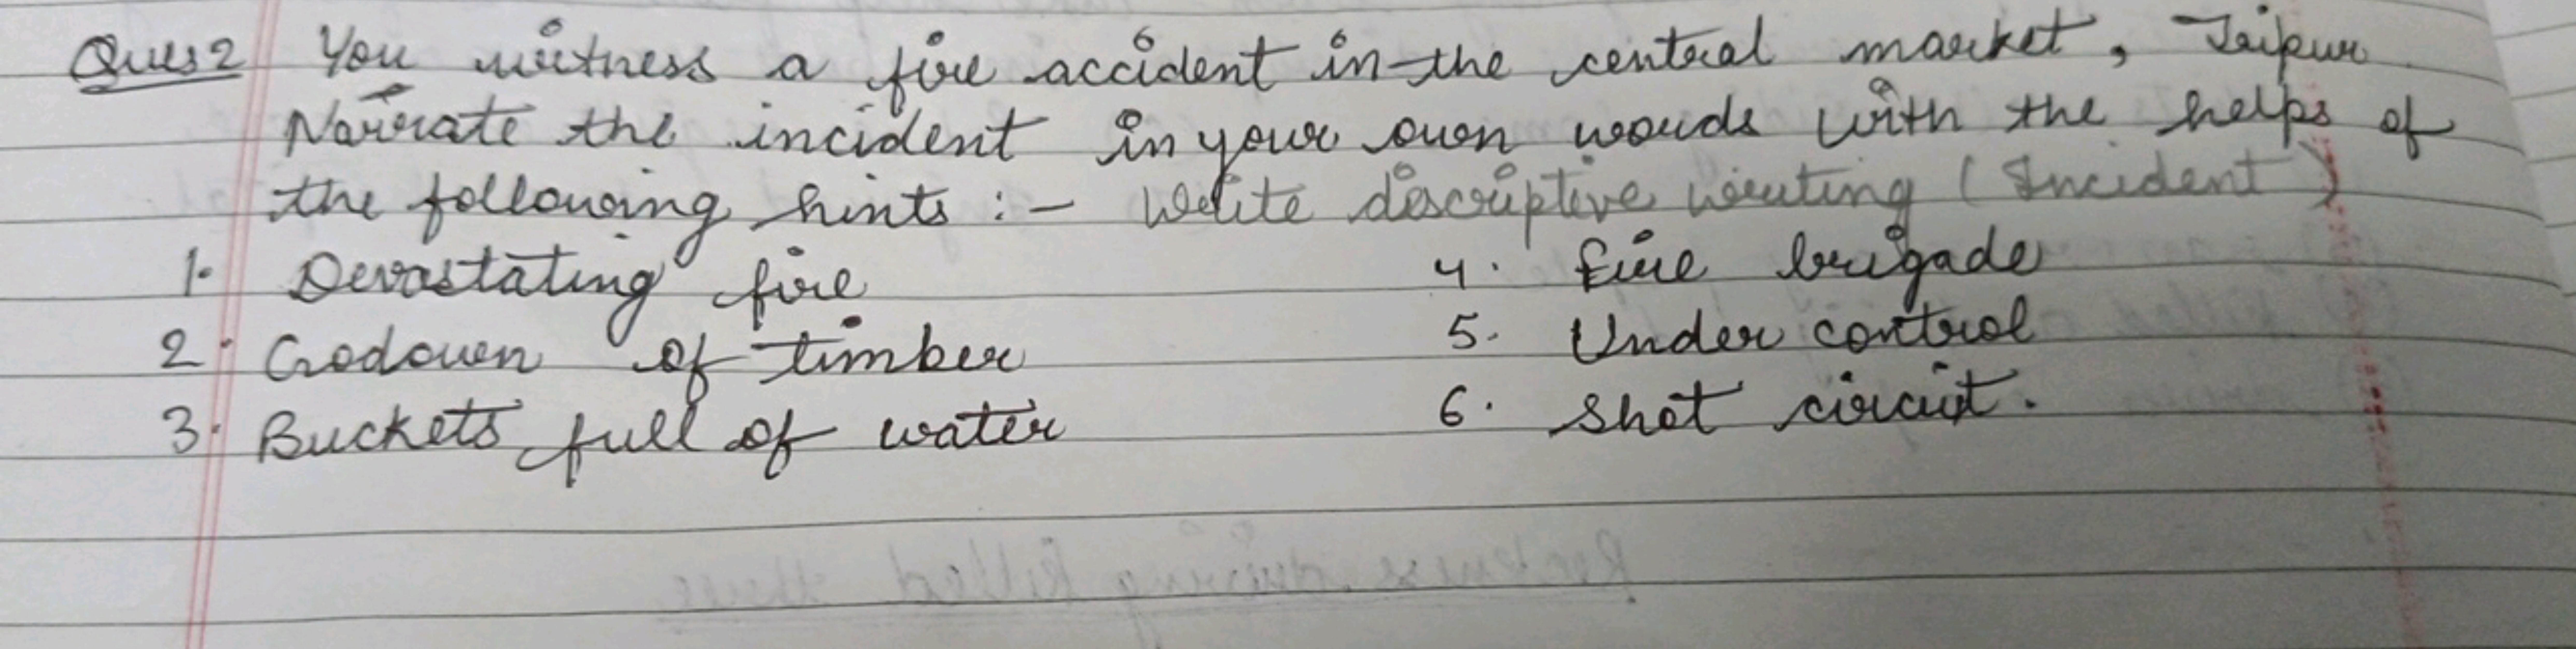 Ques 2 You witness a fire accident in the central market, Jaipur
Narrate the incident in your own words with the helps of
the following hints :- Write descriptive writing (Incident)
1. Devastating fire
2. Godown of timber
3. Buckets full of water
4. Fire brigade
5. Under control
6. Shot circuit.